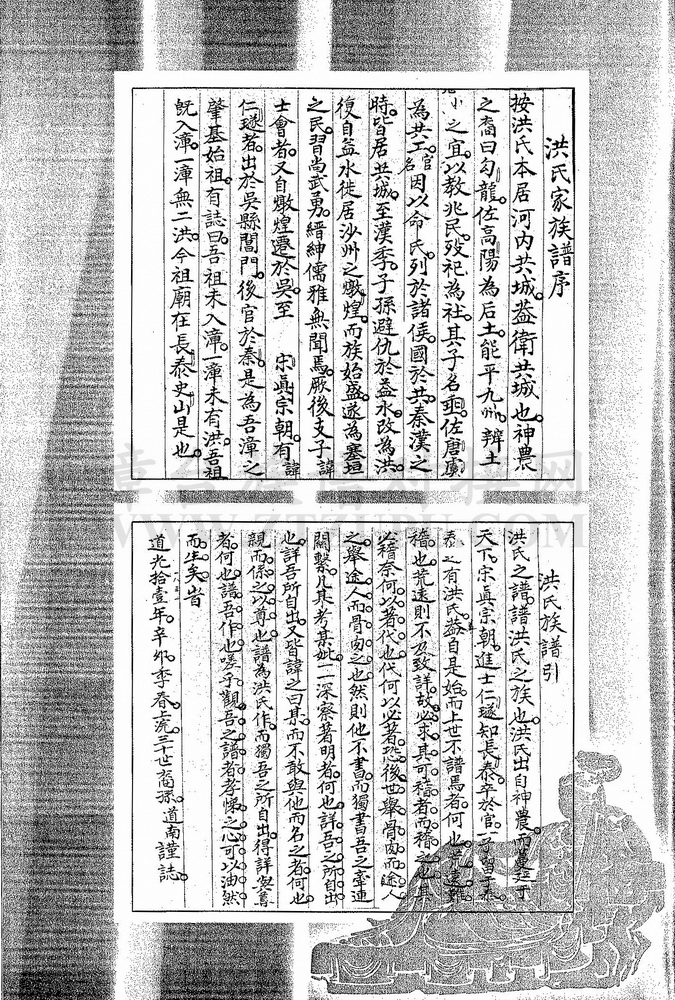 洪氏家族譜序
按洪氏本居河內共城葢衛共城也神農
之裔曰勾龍佐高陽為后土能平九州辨土
小之宜以教兆民歿祀為社其子名垂佐唐虞
為共工官名因以命氏列於諸侯國於共秦漢之
時皆居共城至漢季子孫避仇於益水改為洪
復自益水徙居沙州之燉煌而族始盛遂為塞垣
之民習尚武勇縉紳儒雅無聞焉厥後支子諱
士會者又自燉煌遷於吳至 宋眞宗朝有諱
仁璲者出於吳縣閶門後官於秦是為吾漳之
肇基始祖有誌曰吾祖未入漳一漳未有洪吾祖
旣入漳一漳無二洪今祖廟在長泰史山是也
洪氏族譜引
洪氏之譜譜洪氏之族也洪氏出自神農而蔓延于
天下宋眞宗朝進士仁璲知長泰卒於官一子留于
泰之有洪氏葢自是始而上世不譜焉者何也荒遠難
稽也荒遠則不及致詳故必求其可稽者而稽之也其
以稽奈何以著代也代何以必著恐後世舉骨肉而途人
之舉途人而骨肉之也然則他不書而獨書吾之牽連
關繫凡其考某妣一一深察著明者何也詳吾之所自出
也詳吾所自出又皆諱之曰某而不敢與他而名之者何也
親而係之以尊也譜為洪氏作而獨吾之所自出得詳與尊
者何也譜吾作也嗟乎觀吾之譜者孝悌之心可以油然
而生矣旹
道光拾壹年辛卯季春 三十世裔孫道南謹誌